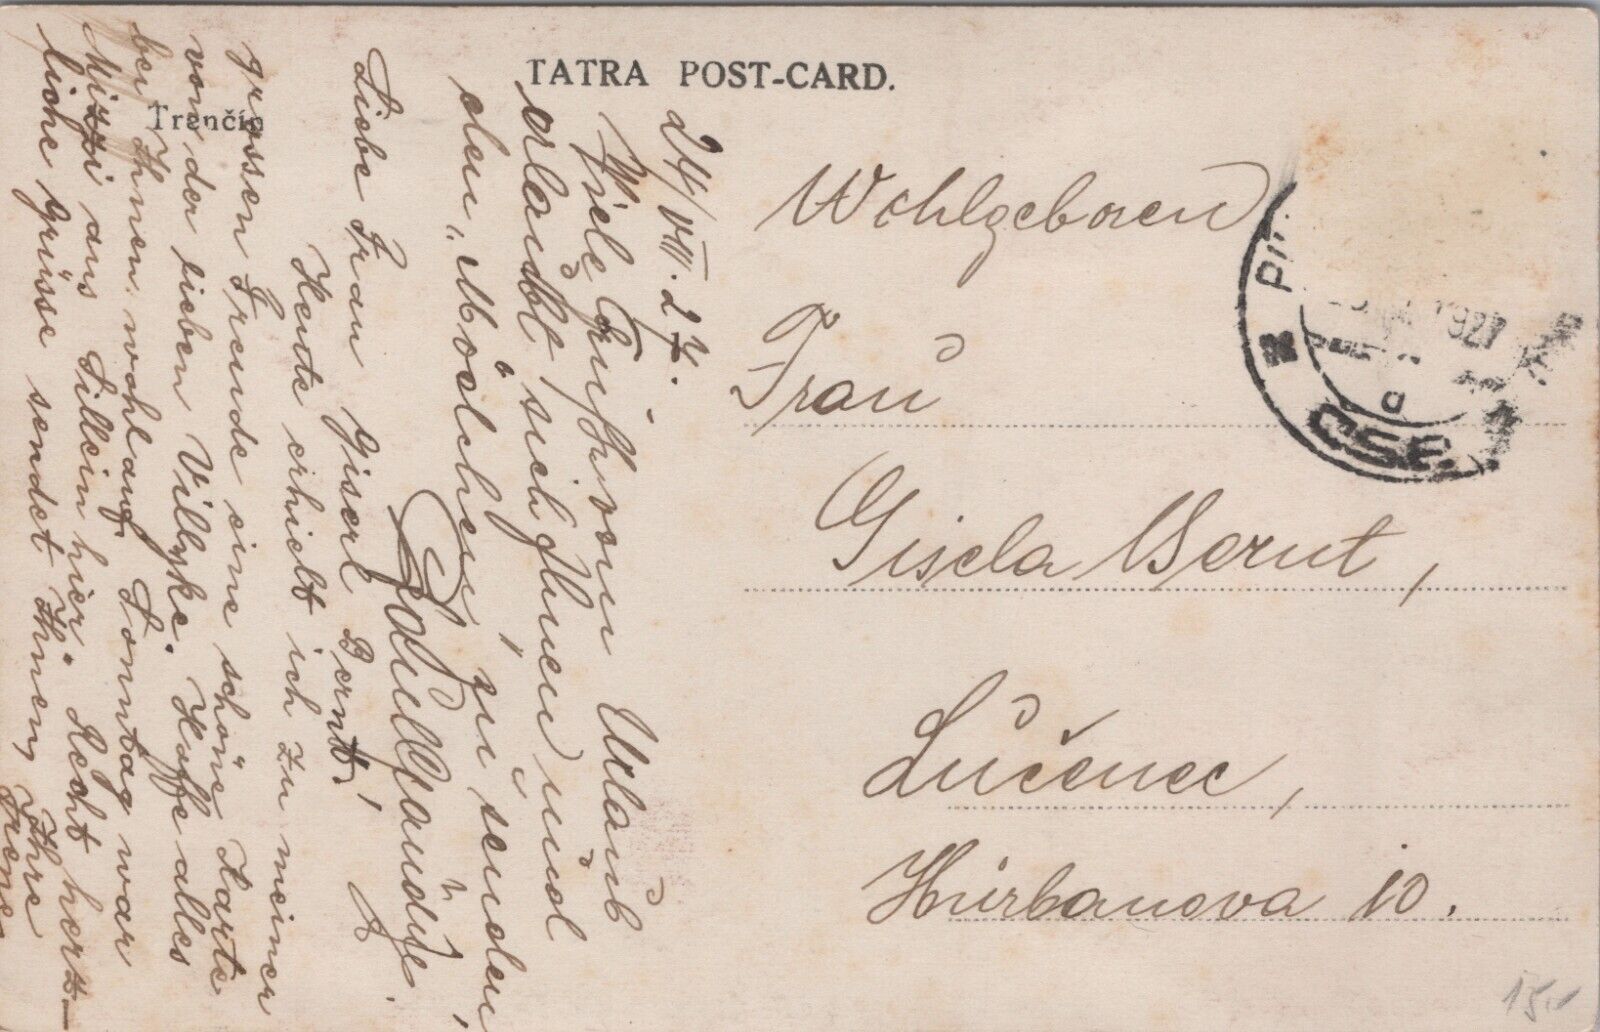 TATRA POST-CARD.
Trenčín
24/VIII. 27.
Viele Grüsse vom Urlaub
erlaubt sich Ihnen und
den "Mädchen" zu senden,
Liebe Frau Giserl Bernt!
Heute erhielt ich zu meiner
grossen Freude eine schöne Karte
von der lieben Villyke. Hoffe alles
bei Ihnen wohlauf. Sonntag war
Mizzi aus Sillein hier. Recht herz-
liche Grüsse sendet Ihnen, Ihre
Irene
Wohlgeboren
Frau
Gisela Bernt,
Lučenec,
Hurbanova 10.
1927
a
ČSR.
2
15.-